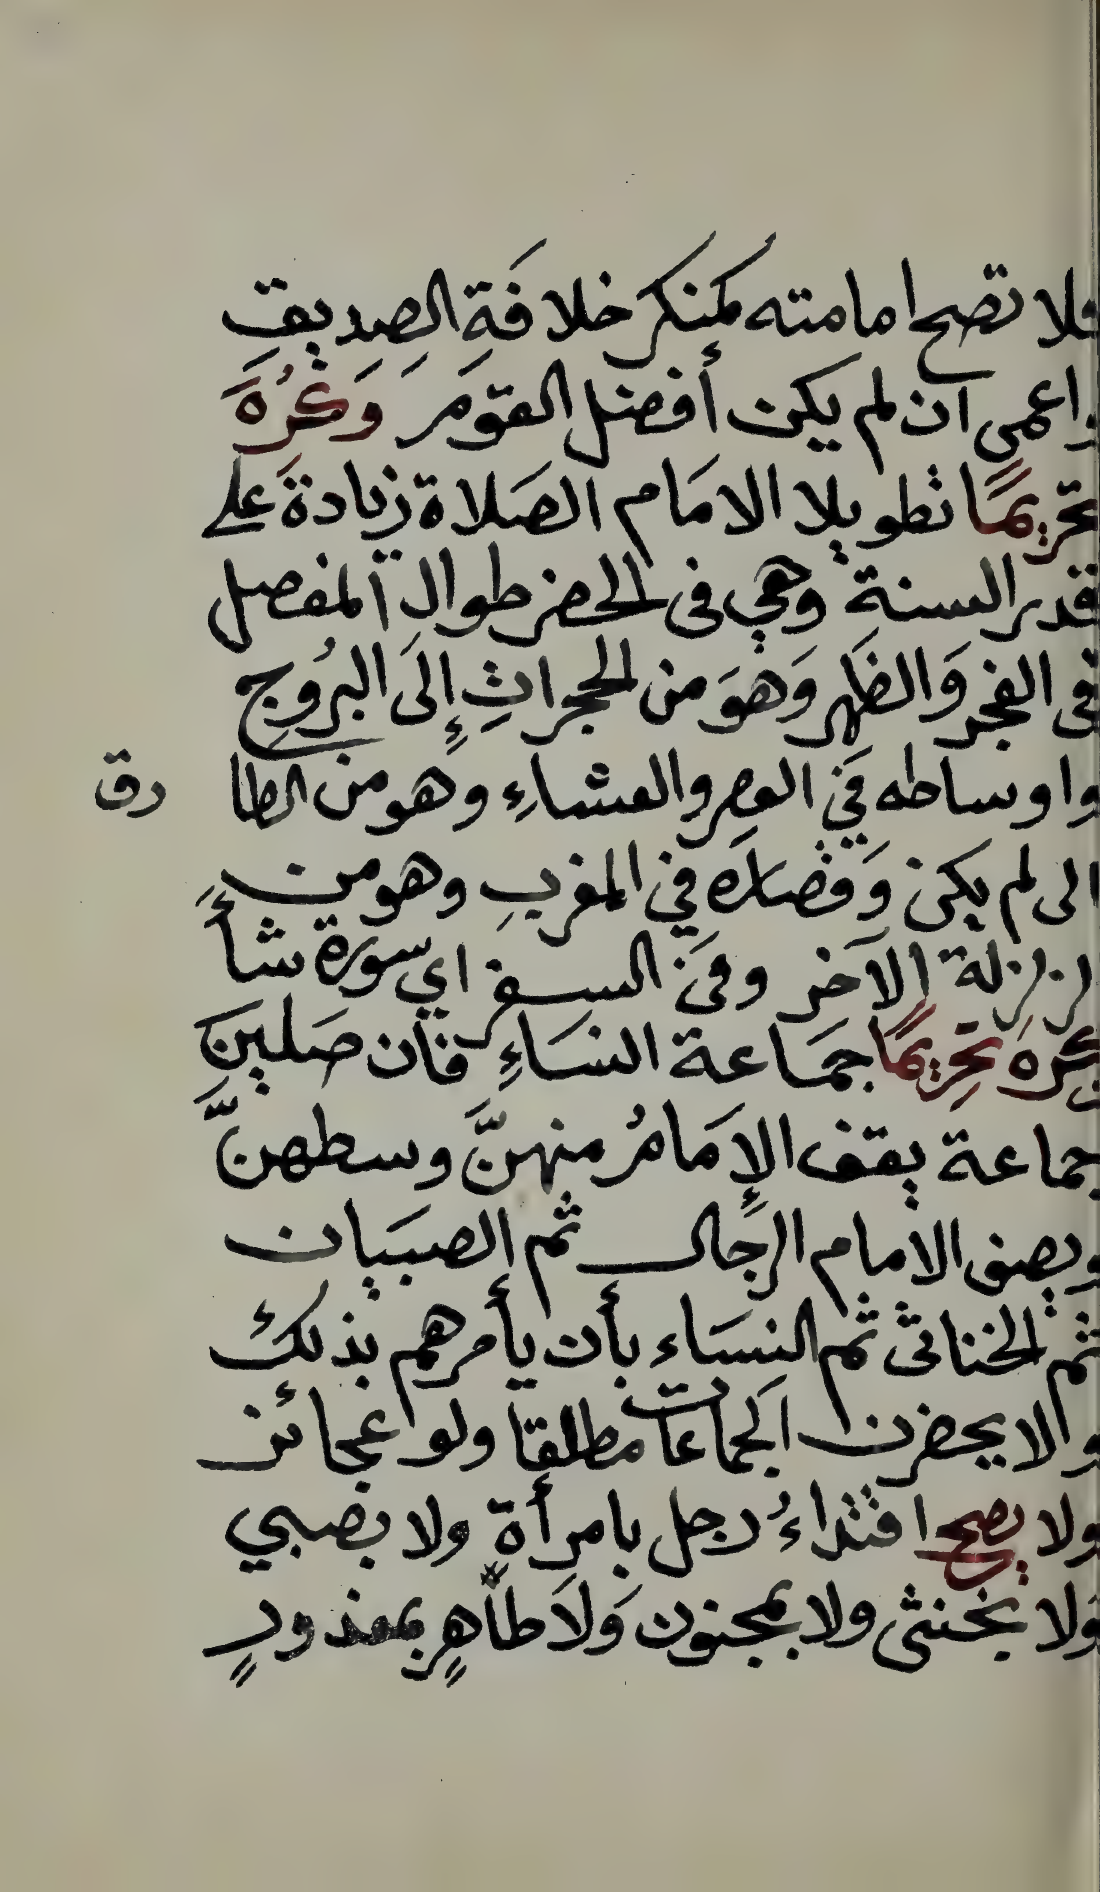 فلا تصح امامته كمنكر خلافة الصديق
واعمى ان لم يكن أفضل القوم وَكُرِهَ
تحريمًا تطويلا الامام الصلاة زيادة على
قدر السنة وهي فى الحضر طوال المفصل
فى الفجر وَالظهر وَهوَ من الحجراتِ إِلَى البرُوجِ
واوساطه في العصر والعشاءِ وهو من الطا
رق
الى لم يكن وَقصاره في المغربِ وهو من
لزلزلة الآخر وفي السفر اي سورة شأَ
وكره تحريمًا جمَاعة النسَاءِ فان صَلينَ
جماعة يقف الإمَامُ منهنَّ وسطهنَّ
ويصف الامام الرجال ثم الصبيان
ثم الخناثى ثم النسَاء بأن يأمرهم بذلك
والا يحضرن الجماعات مطلقا ولو عجائز
ولا يصح اقتداءُ رجل بامرأة ولا بصبي
وَلا بخنثى ولا بمجنون وَلَا طاهرٍ بمعذورٍ